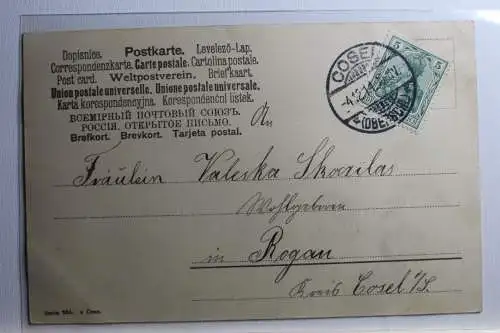 Dopisnice. Postkarte. Levelező-Lap.
Correspondenzkarte. Carte postale. Cartolina postale.
Post card. Weltpostverein. Briefkaart.
Union postale universelle. Unione postale universale.
Karta korespondencyjna. Korespondenční lístek.
ВСЕМІРНЫЙ ПОЧТОВЫЙ СОЮЗЪ.
РОССІЯ. ОТКРЫТОЕ ПИСЬМО.
Brefkort. Brevkort. Tarjeta postal.
COSEL
(OBERSCHL)
5 5
An
Fräulein Valeska Skorzilas
Wohlgeboren
in Rogau
Kreis Cosel O/S.
Serie 564.